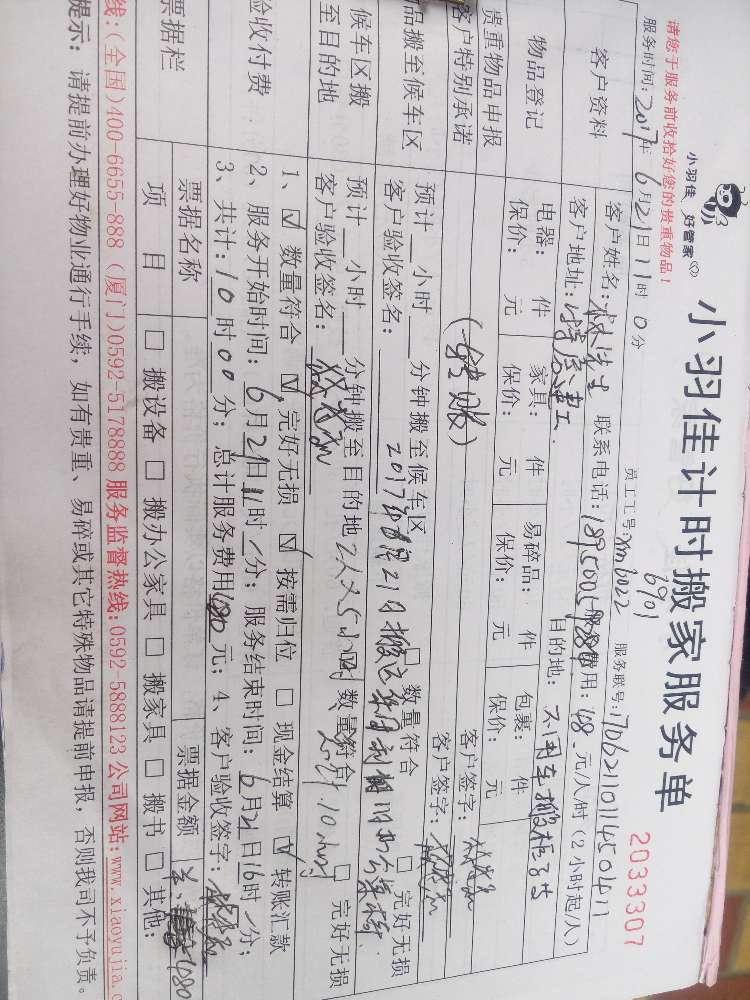 小羽佳计时搬家服务单
2033307
小羽佳 好管家
请您于服务前收拾好您的贵重物品！
服务时间：2017年6月21日11时0分
员工工号：xm3022
6901
服务联号：7062110114501411
客户资料
客户姓名：林先生 联系电话： 服务费用：48元/人/时（2小时起/人）
客户地址： 目的地：不用车搬
物品登记
电器： 件 家具： 件 易碎品： 件 包裹： 件
保价： 元 保价： 元 保价： 元 保价： 元
贵重物品申报 客户签字：
客户特别承诺 （转账） 客户签字：
品搬至候车区
预计 小时 分钟搬至候车区 数量符合 完好无损
客户验收签名： 2017年6月21日搬
候车区搬至目的地
预计 小时 分钟搬至目的地 2人×5小时 数量符合 完好无损
客户验收签名： 10小时
验收付费
1、☑数量符合 ☑完好无损 ☑按需归位 □现金结算 ☑转账汇款
2、服务开始时间：6月21日11时/分；服务结束时间：6月21日16时/分；
3、共计：10时00分；总计服务费用480元；4、客户验收签字：
票据栏
票据名称 票据金额 480
项目 □搬设备 □搬办公家具 □搬家具 □搬书 □其他：
线:(全国)400-6655-888 (厦门)0592-5178888 服务监督热线:0592-5888123 公司网站:www.xiaoyujia.c
提示：请提前办理好物业通行手续，如有贵重、易碎或其它特殊物品请提前申报，否则我司不予负责。